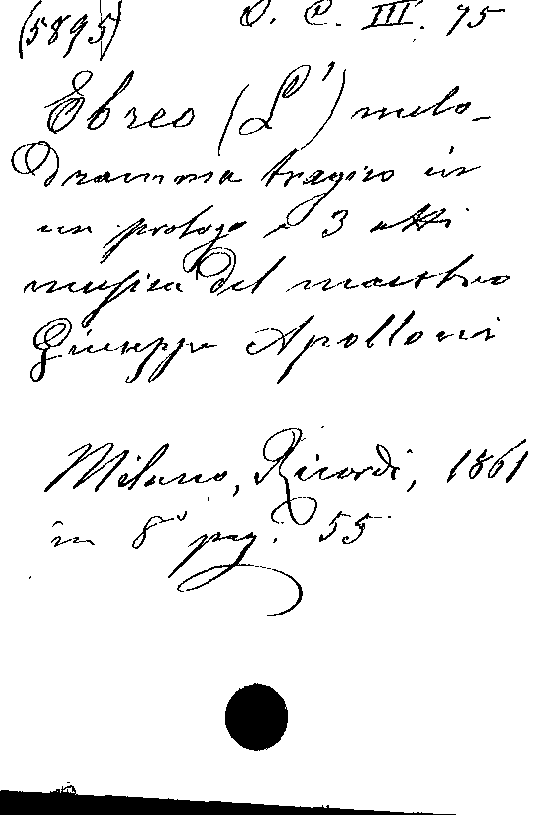 (5895) S. C. III. 75
Ebreo (L') melo-
dramma tragico in
un prologo e 3 atti
musica del maestro
Giuseppe Apolloni
Milano, Ricordi, 1861
in 8° pag. 55